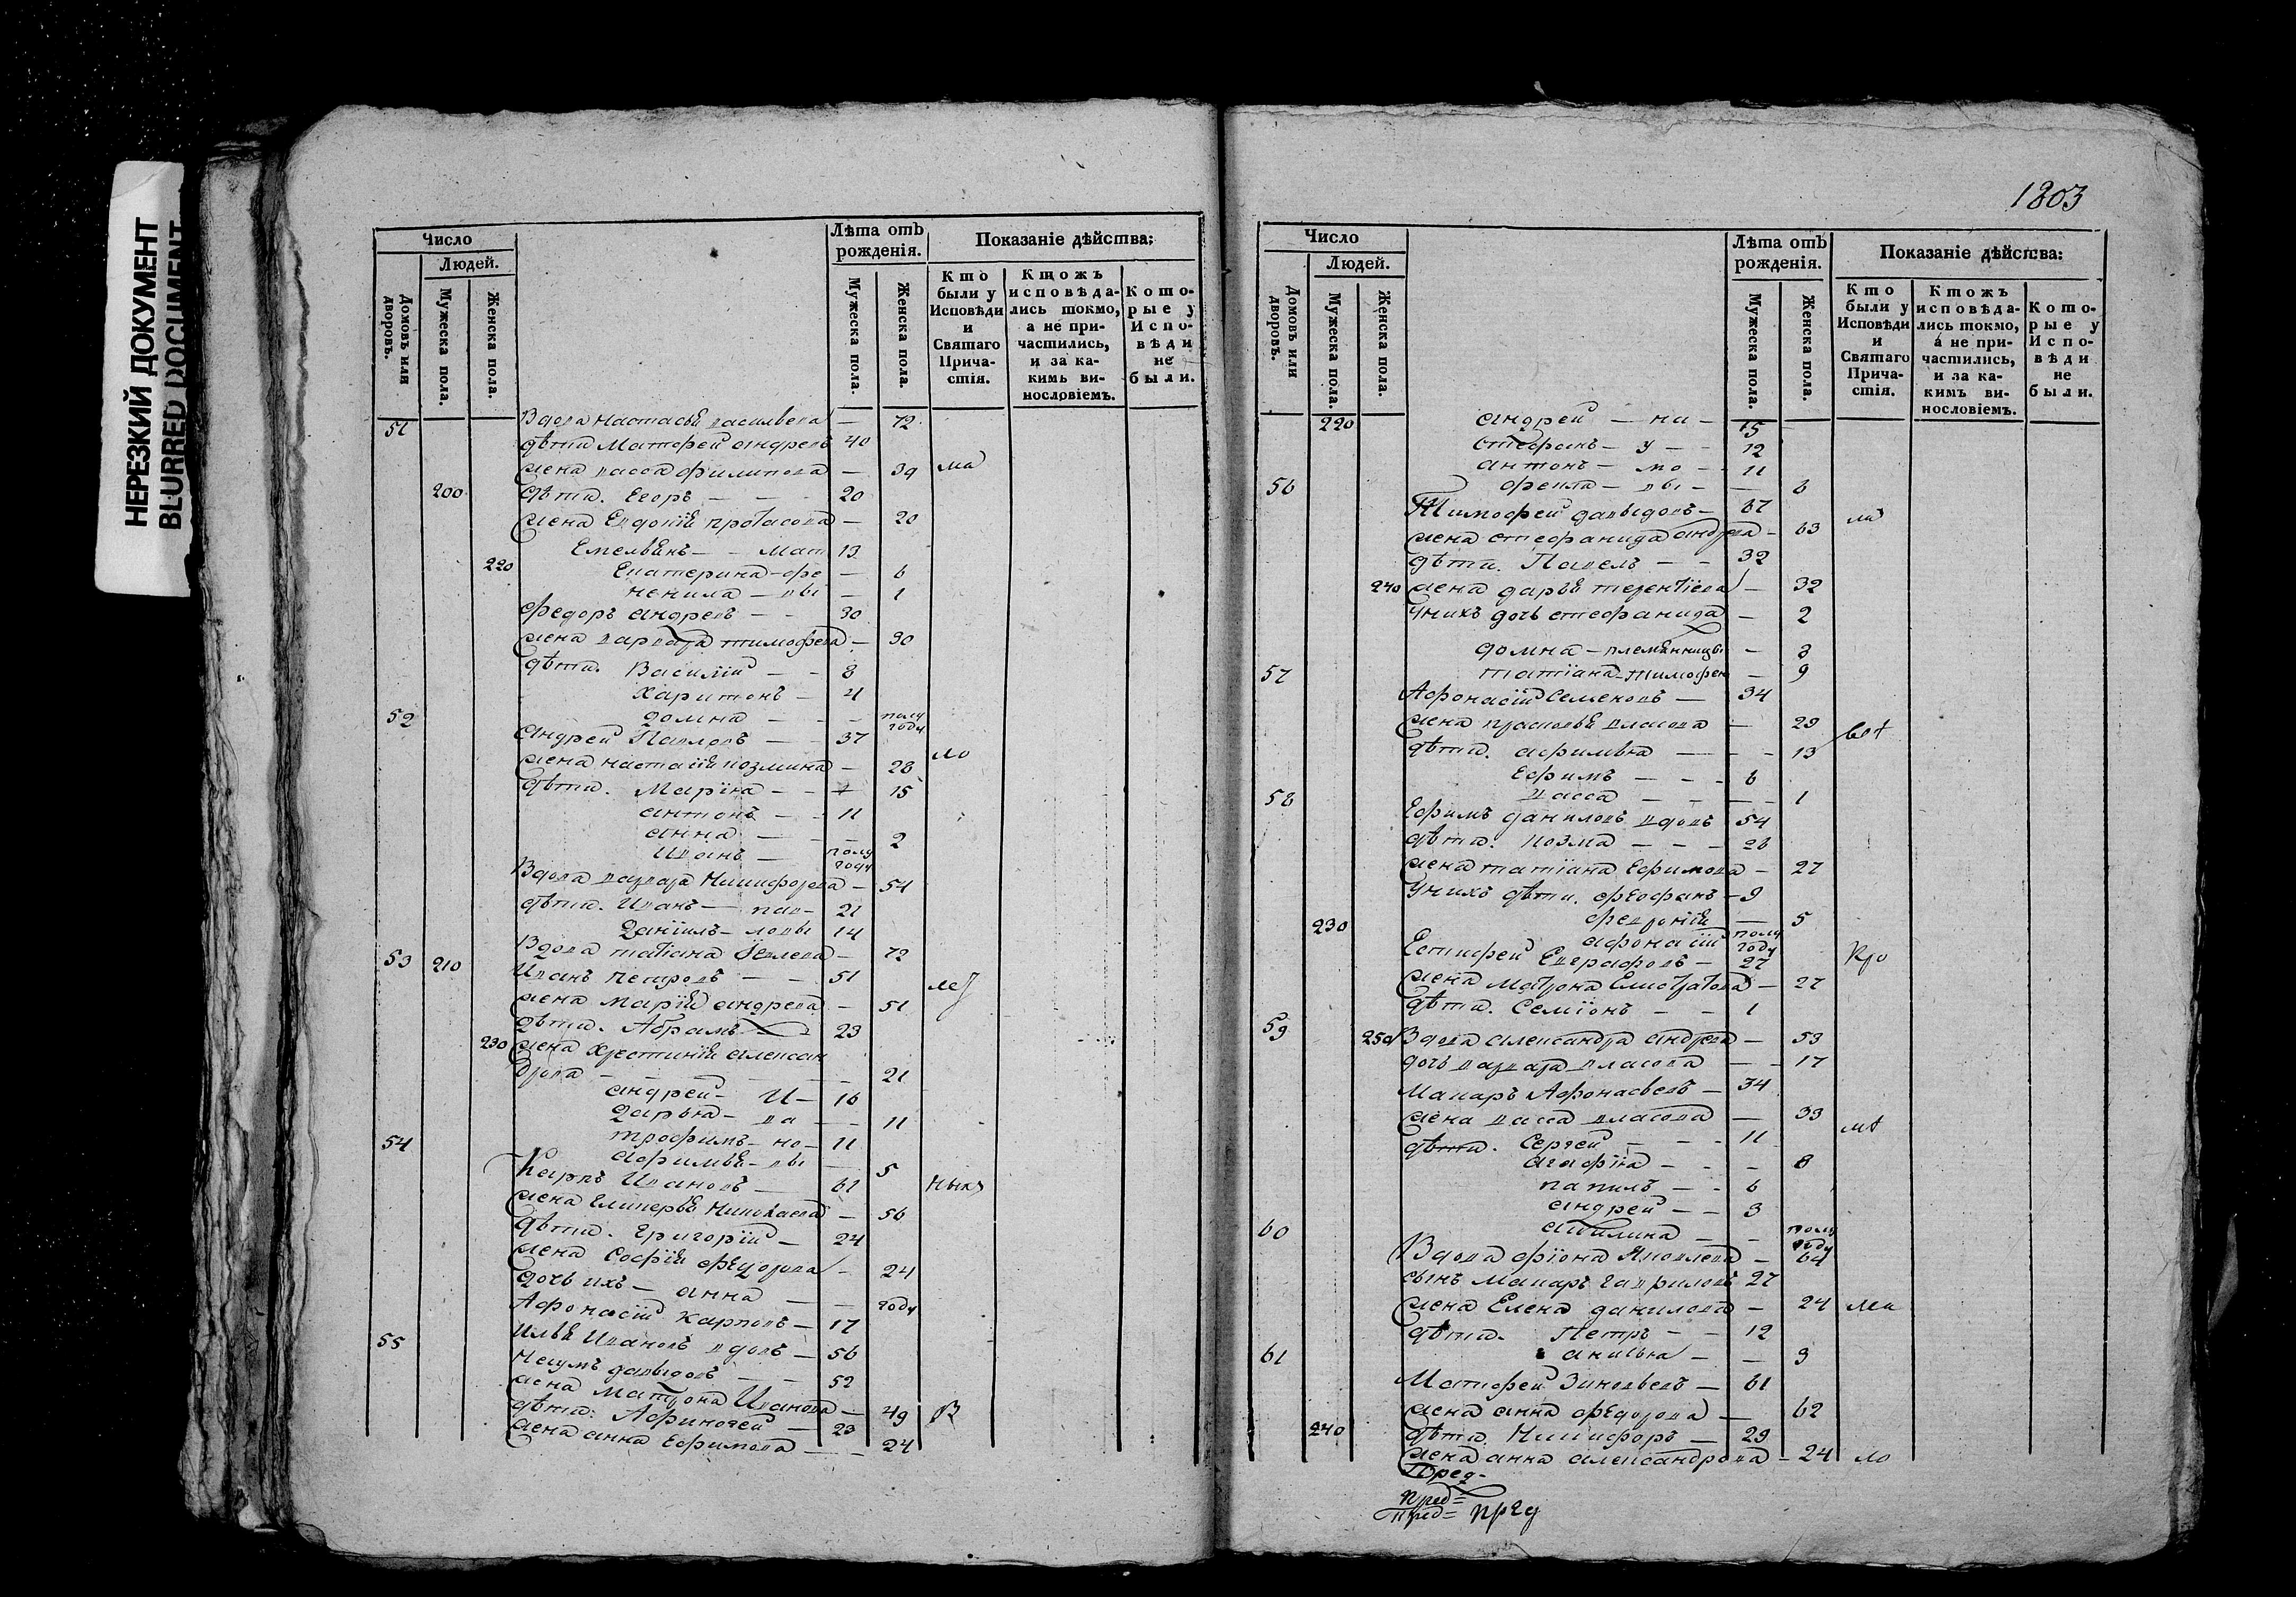 НЕРЕЗКИЙ ДОКУМЕНТ
BLURRED DOCUMENT
Число
Людей.
Домовъ или дворовъ.
Мужеска пола.
Женска пола.
Лѣта отъ рожденія.
Мужеска пола.
Женска пола.
Показаніе дѣйства:
Кто были у Исповѣди и Святаго Причастія.
Ктожъ исповѣдались токмо, а не причастились, и за какимъ винословіемъ.
Которые у Исповѣди не были.
51 Вдова Настасья василвева — 72
дѣти Матфей андревъ 40
жена васса филипова — 39 ма
200 дѣти. Егоръ — 20
жена Евдокія протасова — 20
Емельянъ — Мат 13
220 Екатерина — фе — 6
ненила — вы — 1
федоръ андревъ — 30
жена варвара тимофева — 30
дѣти. Василій — 8
харитонъ — 4
52 домна — полугоду
андрей Павловъ — 37
жена настасія козмина — 28 ло
дѣти. Марѳна — 15
антонъ — 11
анна — 2
Иванъ — полугоду
Вдова варвара Никифорова — 54
дѣти. Иванъ — пав — 21
даніилъ — ловы 14
Вдова татіана Іевлева — 72
53 210 Иванъ петровъ — 51
жена марія андрева — 51
дѣти. Абрамъ 23
230 жена христинія алексан
дрова — 21
андрей — И — 16
дарья — ва — 11
трофимъ — но — 11
54 афимья — вы — 5
Карпъ Ивановъ — 61 ныхъ
жена гликерья Николаева — 56
дѣти. григорій — 24
жена Софія федорова — 24
дочь ихъ — анна — году
Афонасій карповъ — 17
55 Илья Ивановъ вдовъ — 56
Наумъ давыдовъ — 52
жена матрона Иванова — 49 В
дѣти. Афиногей — 23
жена анна Ефимова — 24
1803
Число
Людей.
Домовъ или дворовъ.
Мужеска пола.
Женска пола.
Лѣта отъ рожденія.
Мужеска пола.
Женска пола.
Показаніе дѣйства:
Кто были у Исповѣди и Святаго Причастія.
Ктожъ исповѣдались токмо, а не причастились, и за какимъ винословіемъ.
Которые у Исповѣди не были.
220 андрей — на — 15
стефанъ — у — 12
антонъ — мо — 11
56 фекла — вы — 6
Тимофей давыдовъ — 67
жена стефанида андрева — 63
дѣти. Павелъ — 32
240 жена дарья терентіева — 32
Унихъ дочь стефанида — 2
домна — племянницы — 8
57 татіана — тимофеи — 9
Афонасій Семеновъ — 34
жена прасковья власова — 29
дѣти. афимья — 13
Ефимъ — 6
58 васса — 1
Ефимъ даниловъ вдовъ 54
дѣти. козма — 26
жена татіана Ефимова — 27
Унихъ дѣти. феофанъ — 9
230 февронія — 5
афонасій полугоду
Естифей Евграфовъ — 27
жена Матрона Елистратова — 27
дѣти. Семіонъ — 1
59 250 Вдова александра андрева — 53
дочь варвара власова — 17
Макаръ Афонасьевъ — 34
жена васса власова — 33
дѣти. Сергей — 11
агафія — 8
андрей — 3
60 акилина — полугоду
Вдова фіона Яковлева — 64
сынъ Макаръ гавриловъ 27
жена Елена данилова — 24
дѣти. Петръ — 12
61 анисья — 3
Матфей Зиновьевъ — 61
жена анна федорова — 62
240 дѣти. Никифоръ — 29
жена анна александрова — 24 ло
Пред-
пред=
пред= пред